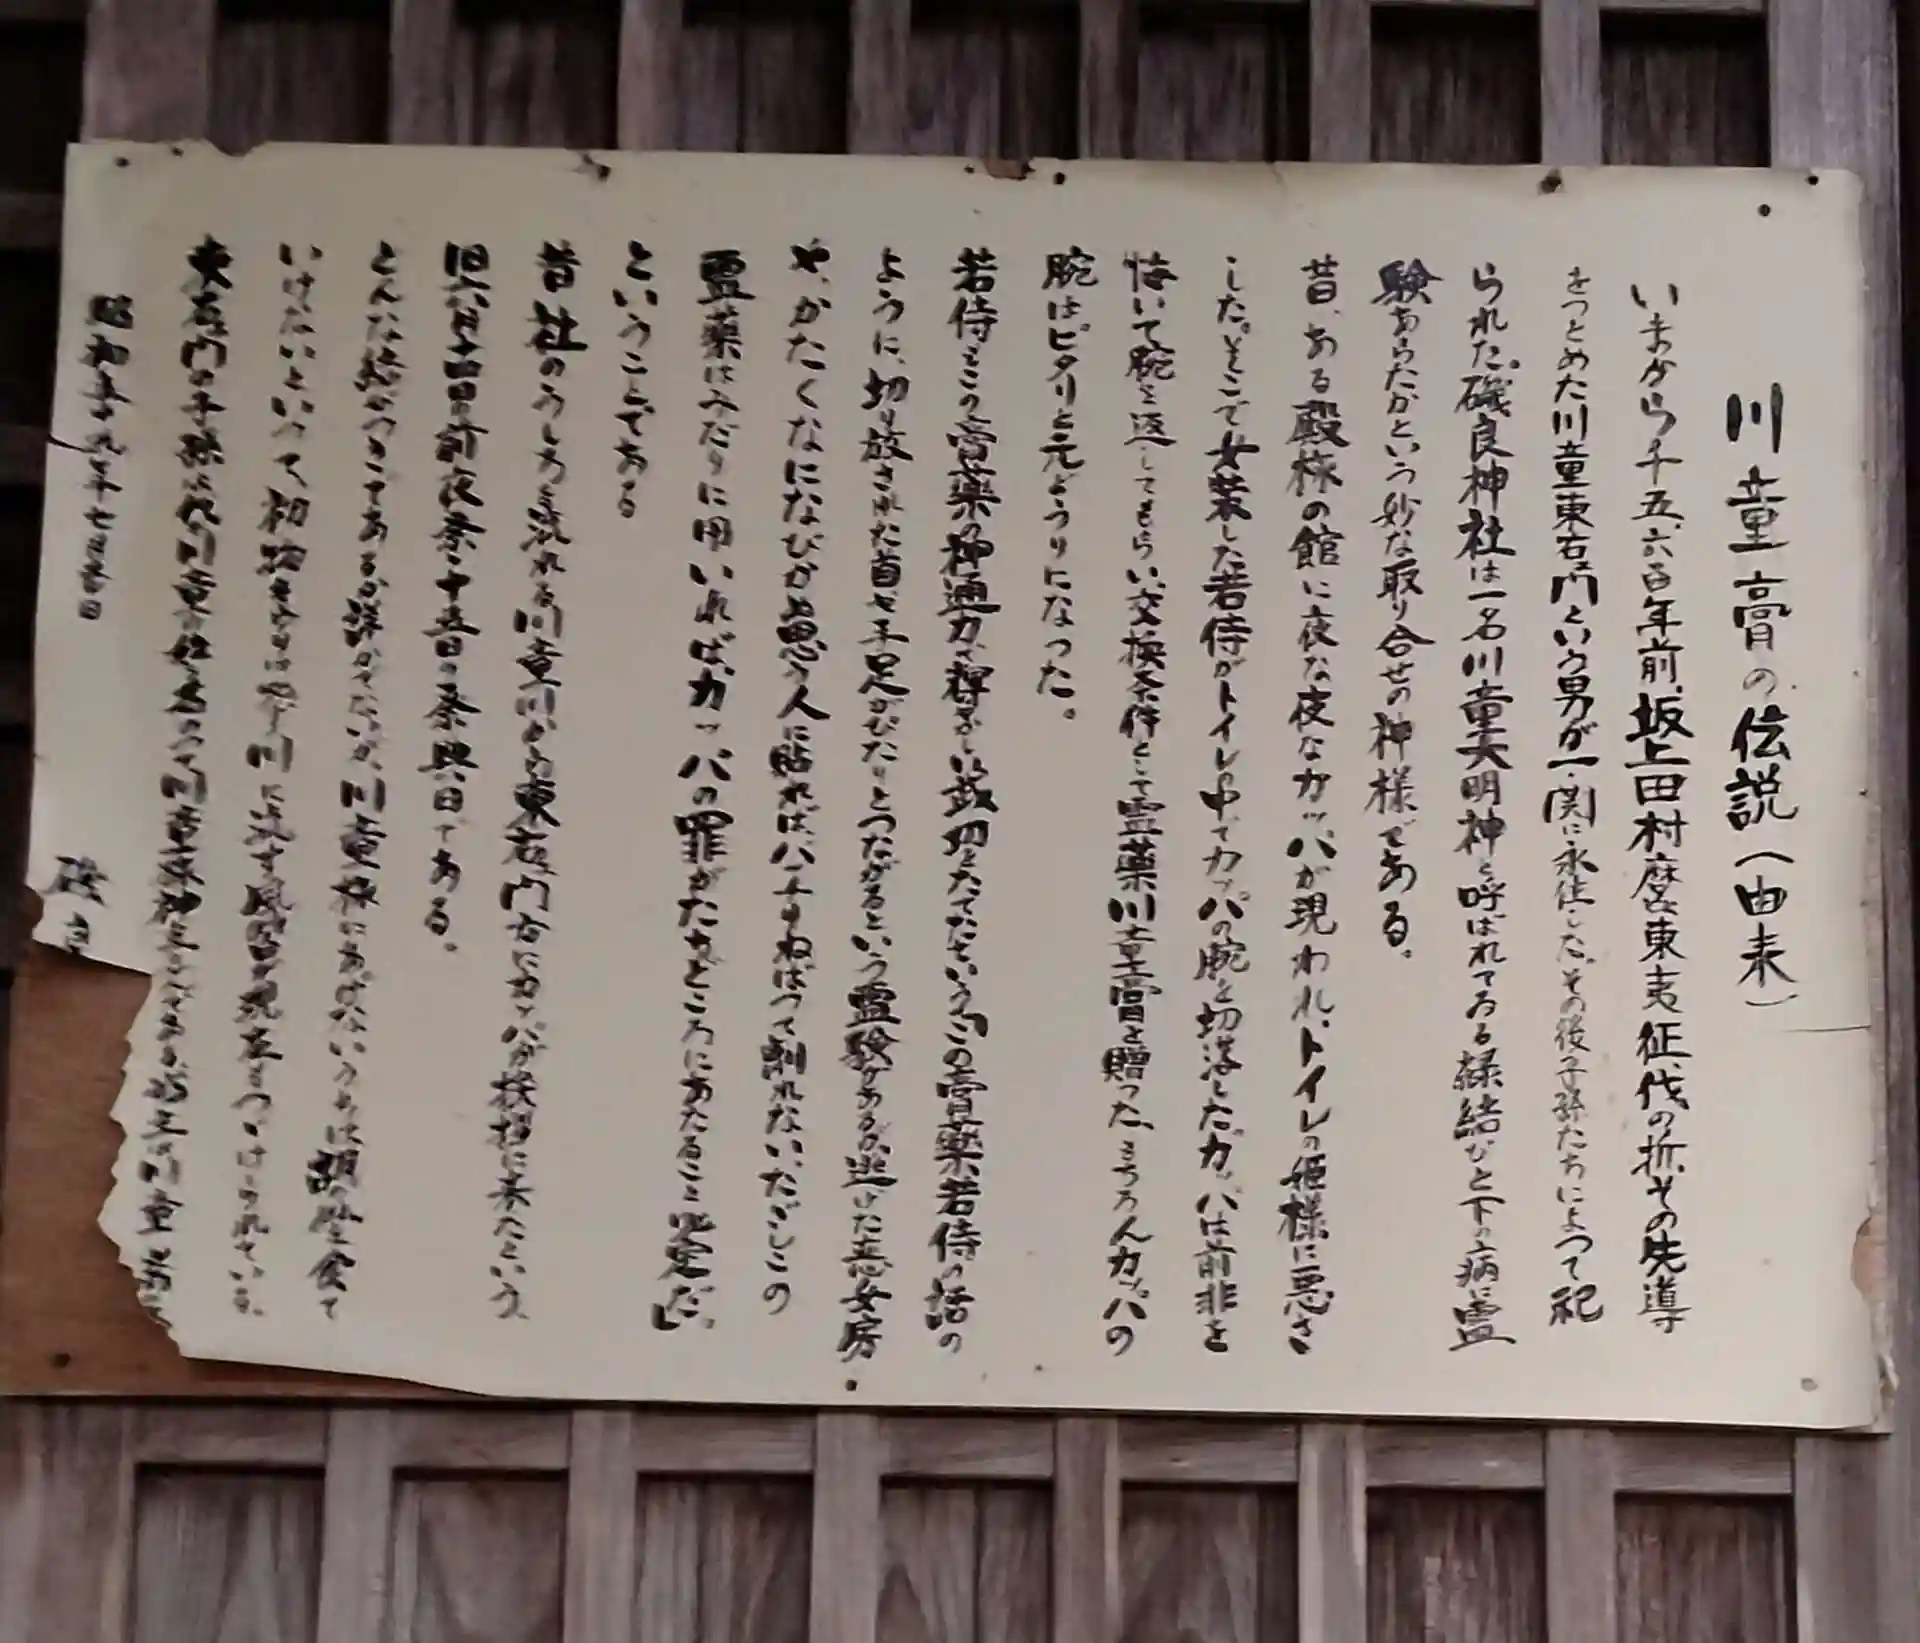 川童膏の伝説(由来)
いまから千五、六百年前、坂上田村麿東夷征伐の折、その先導
をつとめた川童東右ェ門という男が一関に永住した。その後子孫たちによって祀
られた。磯良神社は一名川童大明神と呼ばれている縁結びと下の病に霊
験あらたかという妙な取り合せの神様である。
昔、ある殿様の館に夜な夜なカッパが現われ、トイレの姫様に悪さ
した。そこで女装した若侍がトイレ中でカッパの腕を切落した。カッパは前非を
悔いて腕を返してもらい交換条件として霊薬川童膏を贈った、もちろんカッパの
腕はピタリと元どうりになった。
若侍もこの膏薬の神通力で輝かしい武功をたてたという。この膏薬若侍の話の
ように、切り放された首や手足がぴたりとつながるという霊験があるが逃げた恋女房
や、かたくなになびかぬ思う人に貼れば、ハチもねばって離れない、ただしこの
霊薬はみだりに用いればカッパの罪がたちどころにあたること必定だ。」
ということである
昔社のうしろを流れる川童川から東右ェ門合にカッパが挨拶に来たという、
旧六月十四日の前夜祭、十五日の祭典日である。
とんだ縁がつきであるか詳かでないが、川童様にあげないうちは胡瓜を食て
いけないといって、初物をとれば先ず川に流す風習が現在もつづけられている。
東右ェ門の子孫は代々川童の姓を名のって川童
昭和五十九年七月
磯良